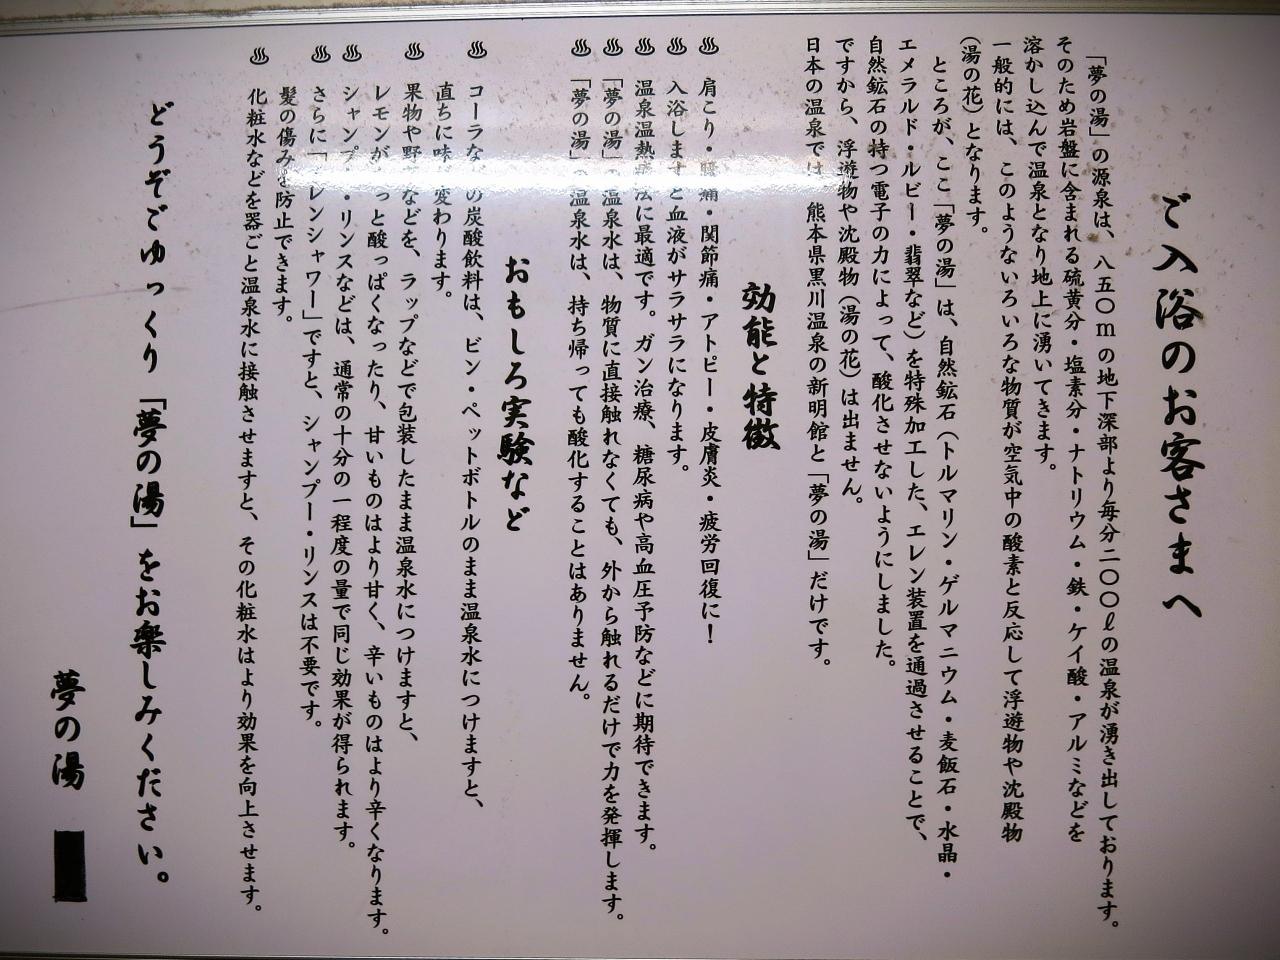 ご入浴のお客さまへ
「夢の湯」の源泉は、八五〇mの地下深部より毎分二〇〇ℓの温泉が湧き出しております。
そのため岩盤に含まれる硫黄分・塩素分・ナトリウム・鉄・ケイ酸・アルミなどを
溶かし込んで温泉となり地上に湧いてきます。
一般的には、このようないろいろな物質が空気中の酸素と反応して浮遊物や沈殿物
(湯の花)となります。
ところが、ここ「夢の湯」は、自然鉱石(トルマリン・ゲルマニウム・麦飯石・水晶・
エメラルド・ルビー・翡翠など)を特殊加工した、エレン装置を通過させることで、
自然鉱石の持つ電子の力によって、酸化させないようにしました。
ですから、浮遊物や沈殿物(湯の花)は出ません。
日本の温泉では、熊本県黒川温泉の新明館と「夢の湯」だけです。
効能と特徴
♨ 肩こり・腰痛・関節痛・アトピー・皮膚炎・疲労回復に!
♨ 入浴しますと血液がサラサラになります。
♨ 温泉温熱療法に最適です。ガン治療、糖尿病や高血圧予防などに期待できます。
♨ 「夢の湯」の温泉水は、物質に直接触れなくても、外から触れるだけで力を発揮します。
♨ 「夢の湯」の温泉水は、持ち帰っても酸化することはありません。
おもしろ実験など
♨ コーラなどの炭酸飲料は、ビン・ペットボトルのまま温泉水につけますと、
直ちに味が変わります。
♨ 果物や野菜などを、ラップなどで包装したまま温泉水につけますと、
レモンがもっと酸っぱくなったり、甘いものはより甘く、辛いものはより辛くなります。
♨ シャンプー・リンスなどは、通常の十分の一程度の量で同じ効果が得られます。
♨ さらに「エレンシャワー」ですと、シャンプー・リンスは不要です。
髪の傷みを防止できます。
♨ 化粧水などを器ごと温泉水に接触させますと、その化粧水はより効果を向上させます。
どうぞごゆっくり「夢の湯」をお楽しみください。
夢の湯